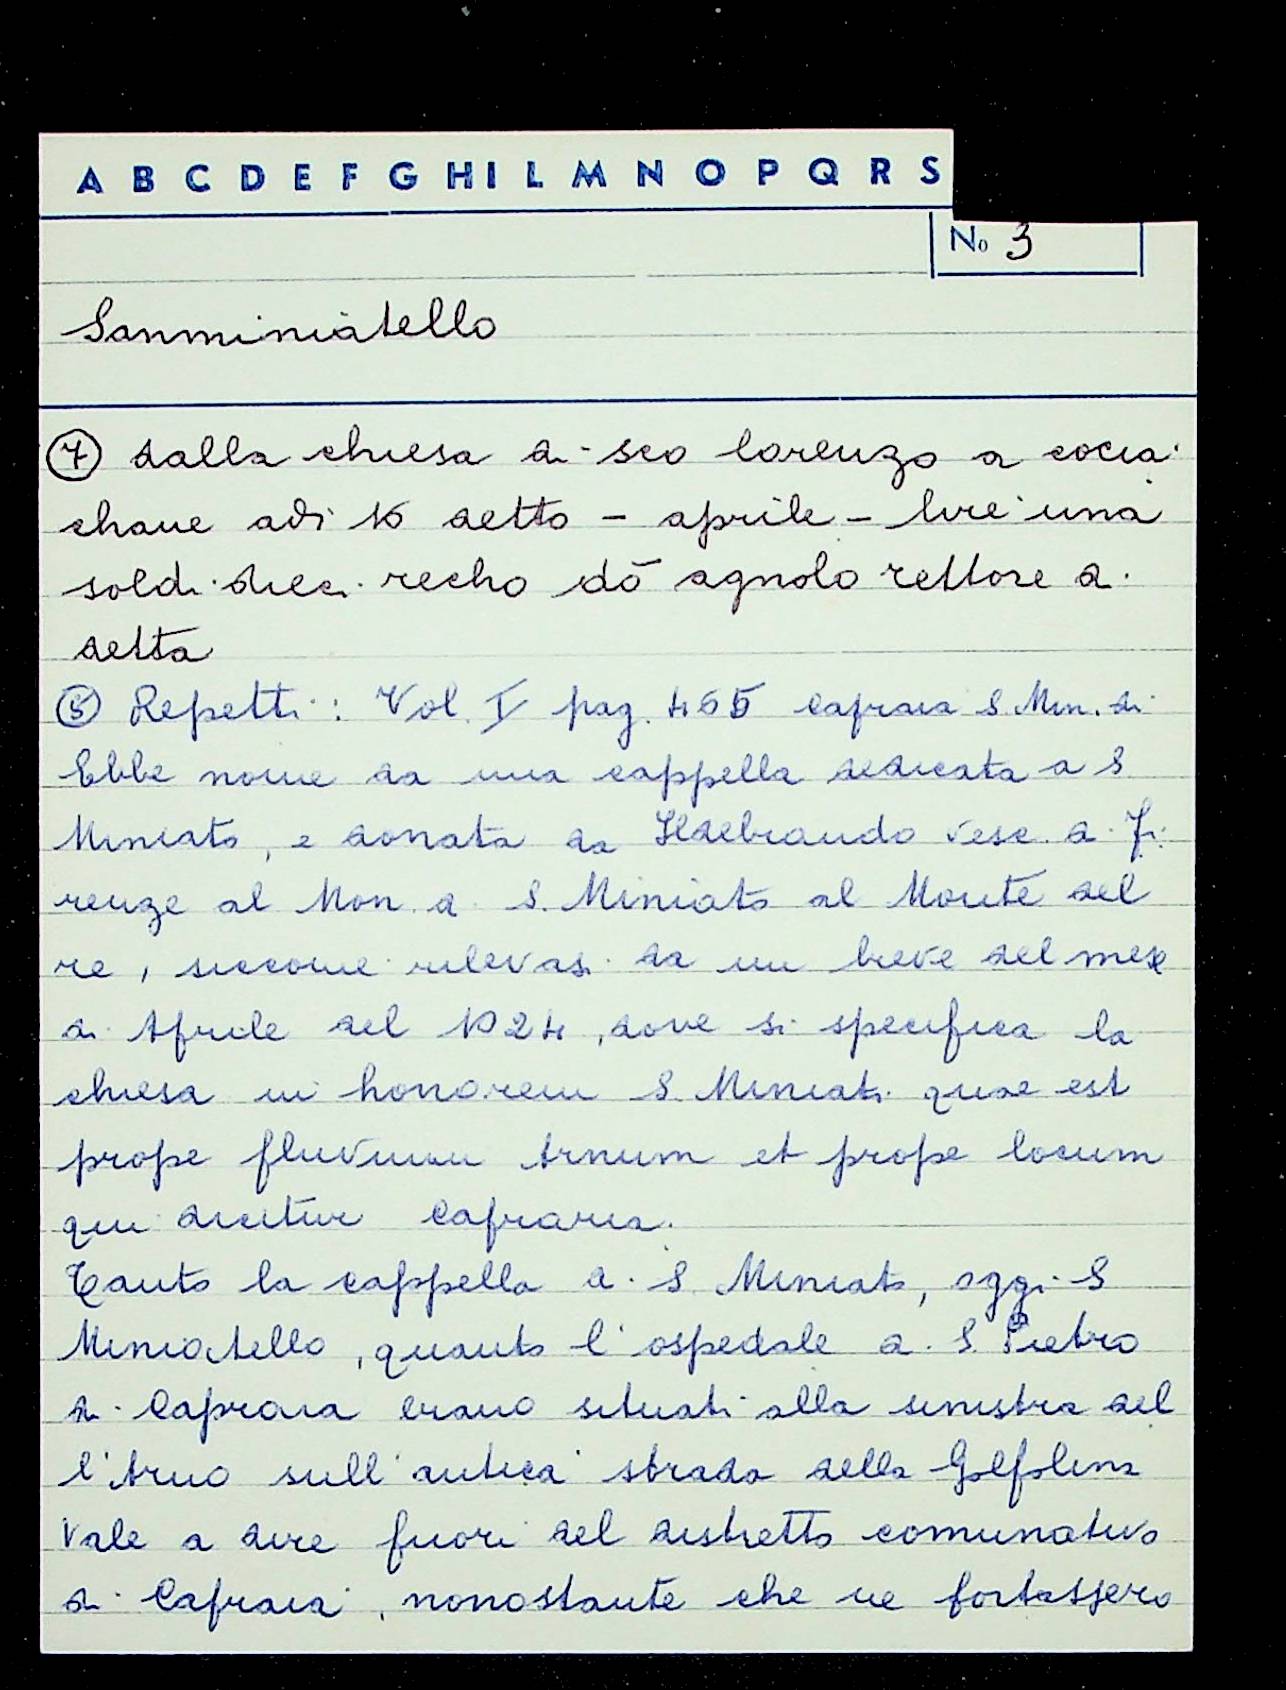 A B C D E F G H I L M N O P Q R S
No 3
Sanminiatello
⑦ dalla chiesa di sco lorenzo a cocia
chaue adi 16 detto - aprile - lire una
soldi dieci recho dō agnolo rettore di
detta
Repetti: Vol. I pag. 465 Capraia S Min. di
Ebbe nome da una cappella dedicata a S
Miniato, e donata da Ildebrando vesc. di Fi
renze al Mon. di S. Miniato al Monte del
re, siccome rilevasi da un breve del mese
di Aprile del 1024, dove si specifica la
chiesa in honorem S. Miniati quae est
prope fluvium Arnum et prope locum
qui dicitur Capraria.
Tanto la cappella di S. Miniato, oggi S
Miniatello, quanto l'ospedale di S. Pietro
di Capraia erano situati alla sinistra del
l'Arno sull'antica strada della Golfolina
vale a dire fuori del distretto comunativo
di Capraia, nonostante che ne portassero